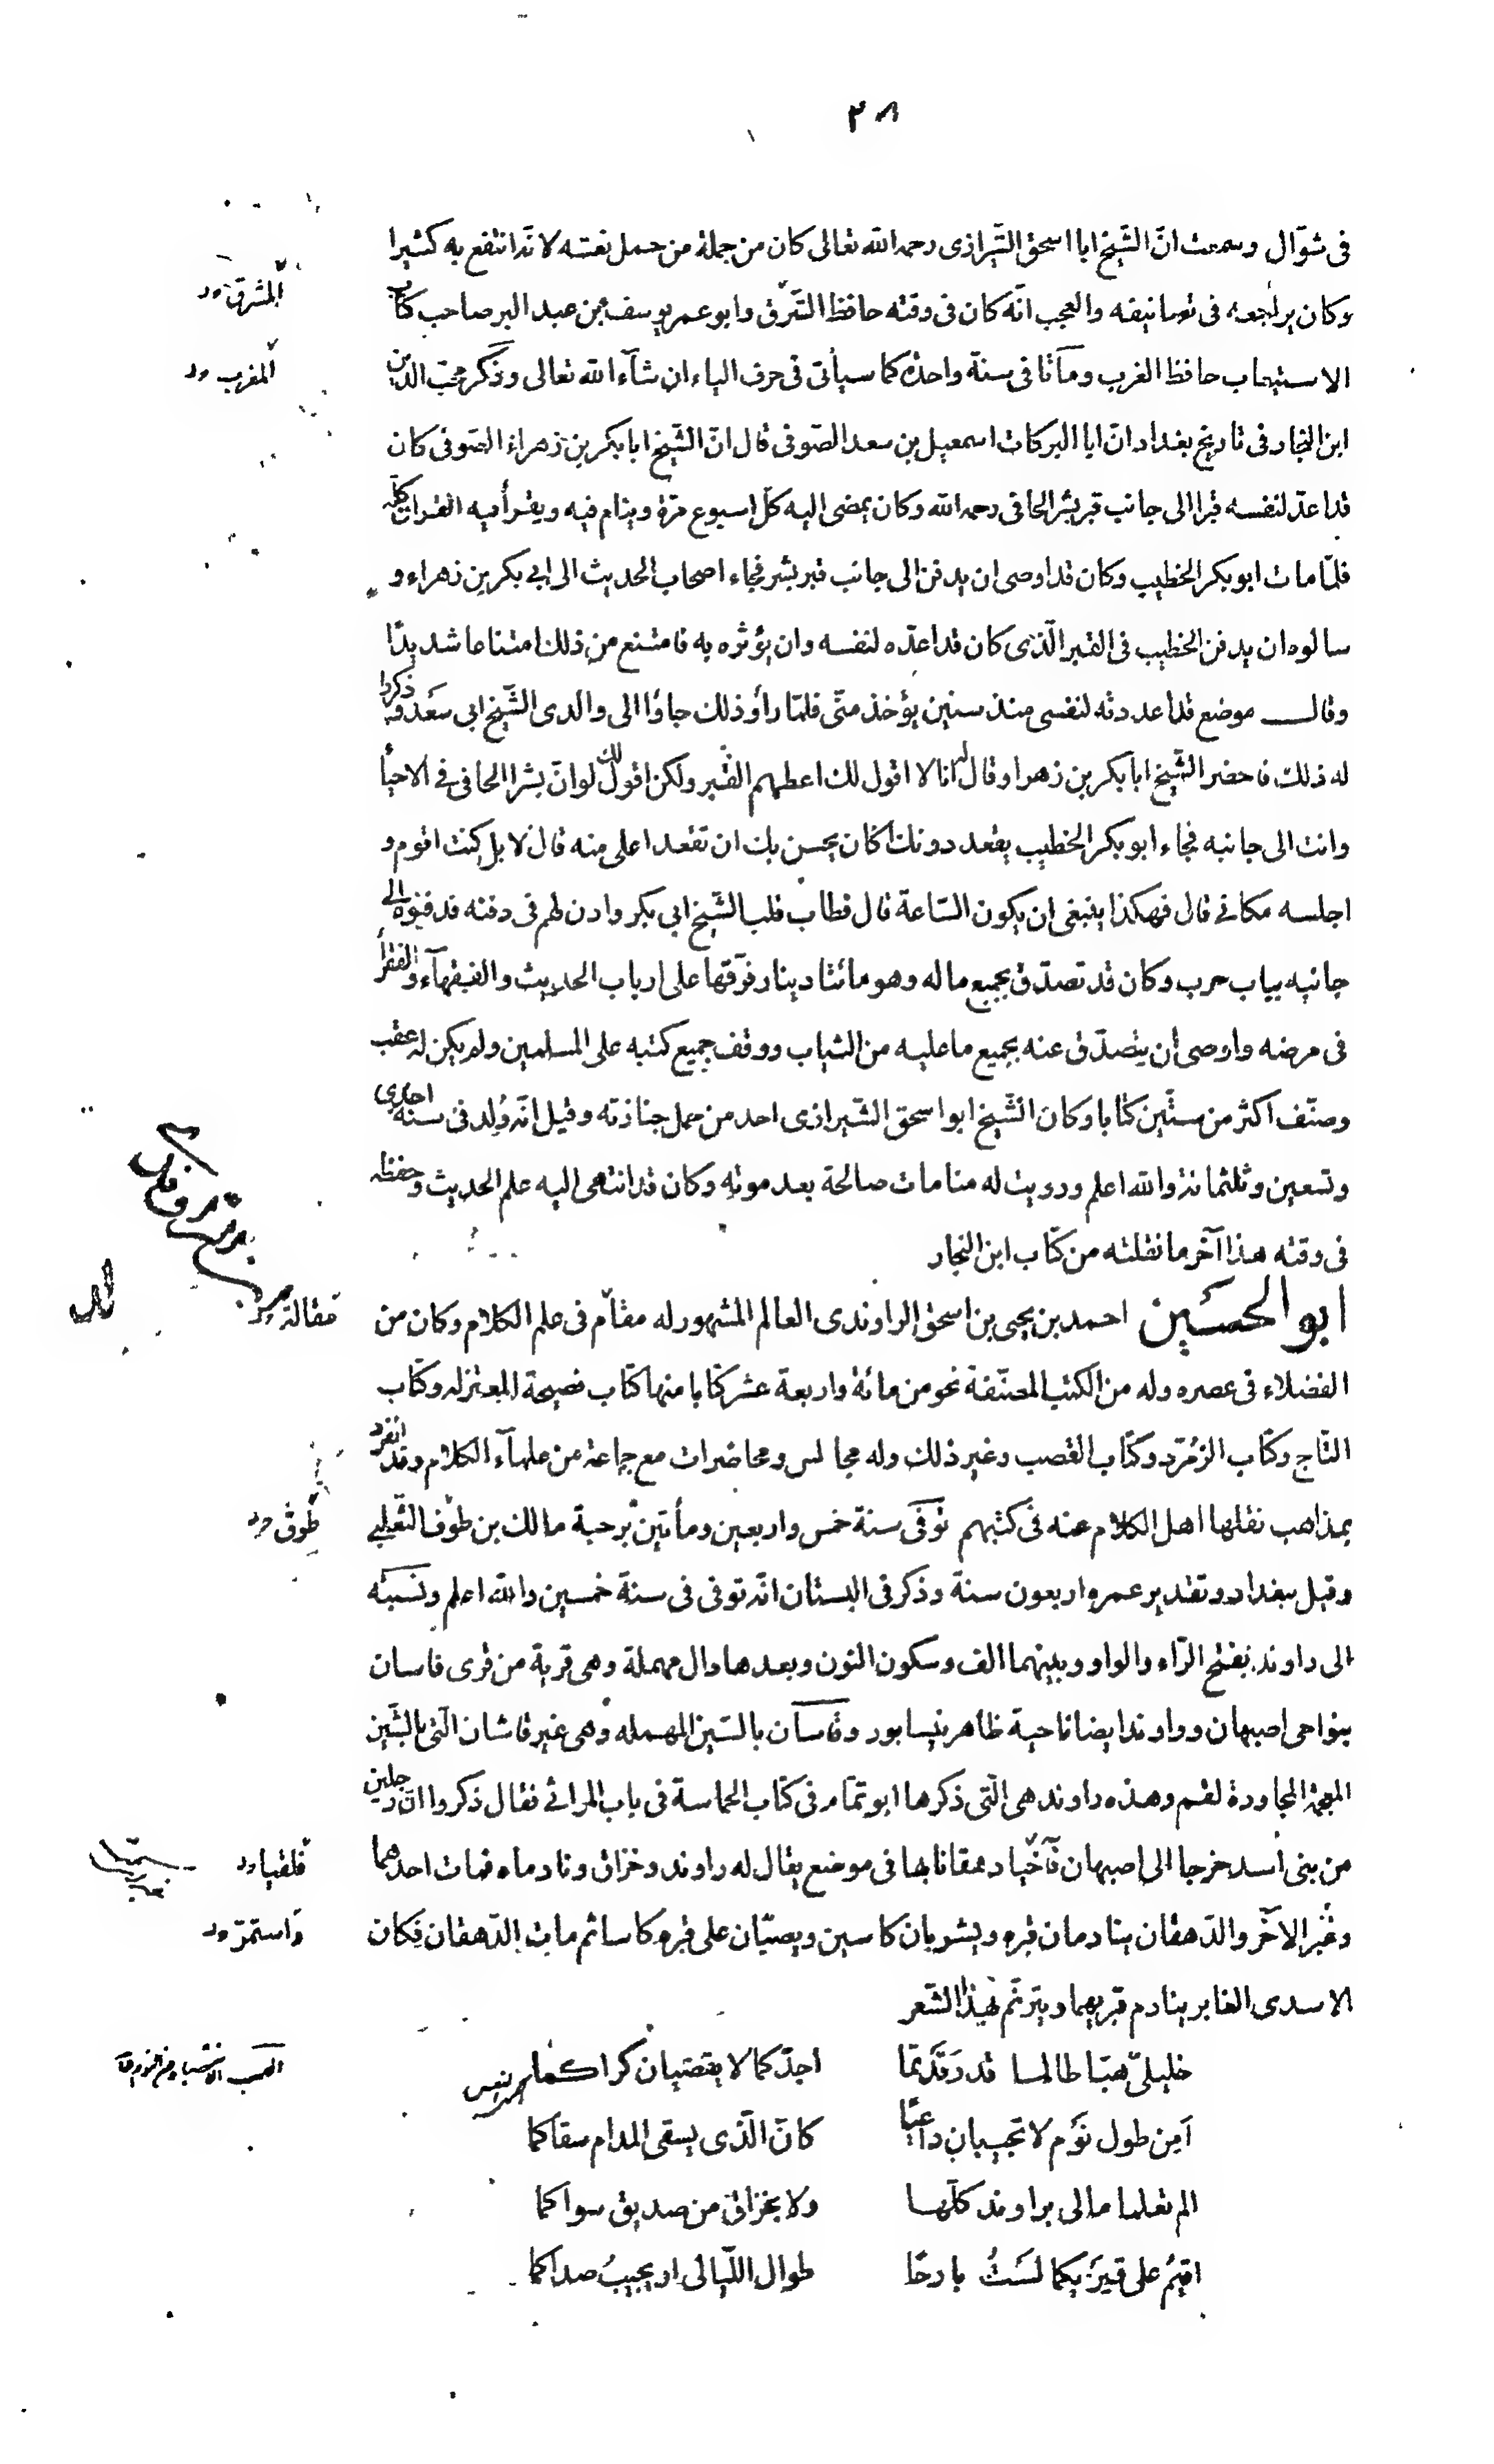 ٣٨
فى شوّال وسمعت انّ الشّيخ ابا اسحق الشّيرازى رحمه الله تعالى كان من جملة من حمل نعشه لانّه انتفع به كثيرا
وكان يراجعه فى تصانيفه والعجب انّه كان فى وقته حافظ الشّرق وابو عمر يوسف بن عبد البر صاحب كتاب
المشرق
الاستيعاب حافظ الغرب وماتا فى سنة واحدة كما سيأتى فى حرف الياء ان شآء الله تعالى وذكر محبّ الدين
المغرب
ابن النجار فى تاريخ بغداد انّ ابا البركات اسمعيل بن سعد الصّوفى قال انّ الشّيخ ابا بكر بن زهراء الصّوفى كان
قد اعدّ لنفسه قبرا الى جانب قبر بشر الحافى رحمه الله وكان يمضى اليه كلّ اسبوع مرّة وينام فيه ويقرأ فيه القران كلّه
فلمّا مات ابو بكر الخطيب وكان قد اوصى ان يدفن الى جانب قبر بشر فجاء اصحاب الحديث الى ابى بكر بن زهراء و
سالوه ان يدفن الخطيب فى القبر الّذى كان قد اعدّه لنفسه وان يؤثره به فامتنع من ذلك امتناعا شديدًا
وقال موضع قد اعددته لنفسى منذ سنين يؤخذ منّى فلمّا رأو ذلك جاؤا الى والدى الشّيخ ابى سعد وذكروا
له ذلك فاحضر الشّيخ ابا بكر بن زهرا وقال له انا لا اقول لك اعطهم القبر ولكن اقول لك لو انّ بشرا الحافى فى الاحيأ
وانت الى جانبه فجاء ابو بكر الخطيب يقعد دونك اكان يحسن بك ان تقعد اعلى منه قال لا بل كنت اقوم و
اجلسه مكانى قال فهكذا ينبغى ان يكون السّاعة قال فطاب قلب الشّيخ ابى بكر واذن لهم فى دفنه فدفنوه الى
جانبه بباب حرب وكان قد تصدّق بجميع ماله وهو مائتا دينار فرّقها على ارباب الحديث والفقهآء والفقرأ
فى مرضه واوصى ان يتصدّق عنه بجميع ما عليه من الثياب ووقف جميع كتبه على المسلمين ولم يكن له عقب
وصنّف اكثر من ستّين كتابا وكان الشّيخ ابو اسحق الشّيرازى احد من حمل جنازته وقيل انّه وُلد فى سنة احدى
وتسعين وثلثمائة والله اعلم ورويت له منامات صالحة بعد موته وكان قد انتهى اليه علم الحديث وحفظه
فى وقته هذا آخر ما نقلته من كتاب ابن النجار
ابو الحسين احمد بن يحيى بن اسحق الراوندى العالم المشهور له مقام فى علم الكلام وكان من
مقالة
الفضلاء فى عصره وله من الكتب المصنّفة نحو من مائة واربعة عشر كتابا منها كتاب فضيحة المعتزله وكتاب
التّاج وكتاب الزمّرد وكتاب القصب وغير ذلك وله مجالس ومحاضرات مع جماعة من علمآء الكلام وقد انفرد
بمذاهب نقلها اهل الكلام عنه فى كتبهم توفى سنة خمس واربعين ومأتين برحبة مالك بن طوف التّغلبى
طوق
وقيل ببغداد وتقدير عمره اربعون سنة وذكر فى البستان انّه توفى فى سنة خمسين والله اعلم ونسبته
الى راوند بفتح الرّاء والواو وبينهما الف وسكون النون وبعدها دال مهملة وهى قرية من قرى قاسان
بنواحى اصبهان وراوند ايضا ناحية ظاهر نيسابور وقاسان بالسّين المهمله وهى غير قاشان الّتى بالشّين
المعجمة المجاورة لقم وهذه راوند هى الّتى ذكرها ابو تمّام فى كتاب الحماسة فى باب المراثى فقال ذكروا انّ رجلين
من بنى أسد خرجا الى اصبهان فآخيا دهقانا بها فى موضع يقال له راوند وخزاق ونادماه فمات احدهما
فلقيا
وغبر الآخر والدّهقان ينادمان قبره ويشربان كاسين ويصبّان على قبره كاسا ثم مات الدّهقان فكان
واستمرّ
الاسدى الغابر ينادم قبريهما ويترنّم بهذا الشّعر
خليلىّ هبّا طالما قد رقدتما اجدّكما لا يقضيان كراكما
أمِن طول نَوم لا تجيبان داعيًا كانّ الّذى يسقى المدام سقاكما
الم تعلما مالى براوند كلّها ولا بخزاق من صديق سواكما
اقيمُ على قبرَيكما لستُ بارحًا طوال اللّيالى او يجيبُ صداكما